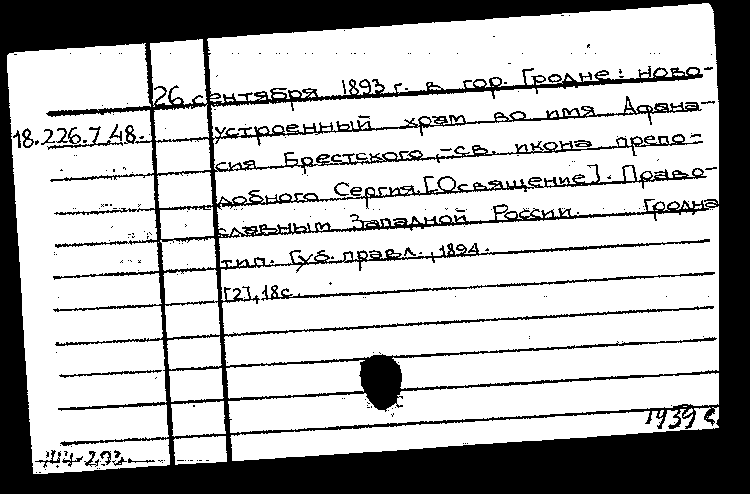 26 сентября 1893 г. в гор. Гродне: ново-
18.226.7.48. устроенный храм во имя Афана-
сия Брестского,-св. икона препо-
добного Сергия.[Освящение]. Право-
славным Западной России. Гродна
тип. Губ. правл., 1894.
[2], 18с.
1939 с.
144-293.